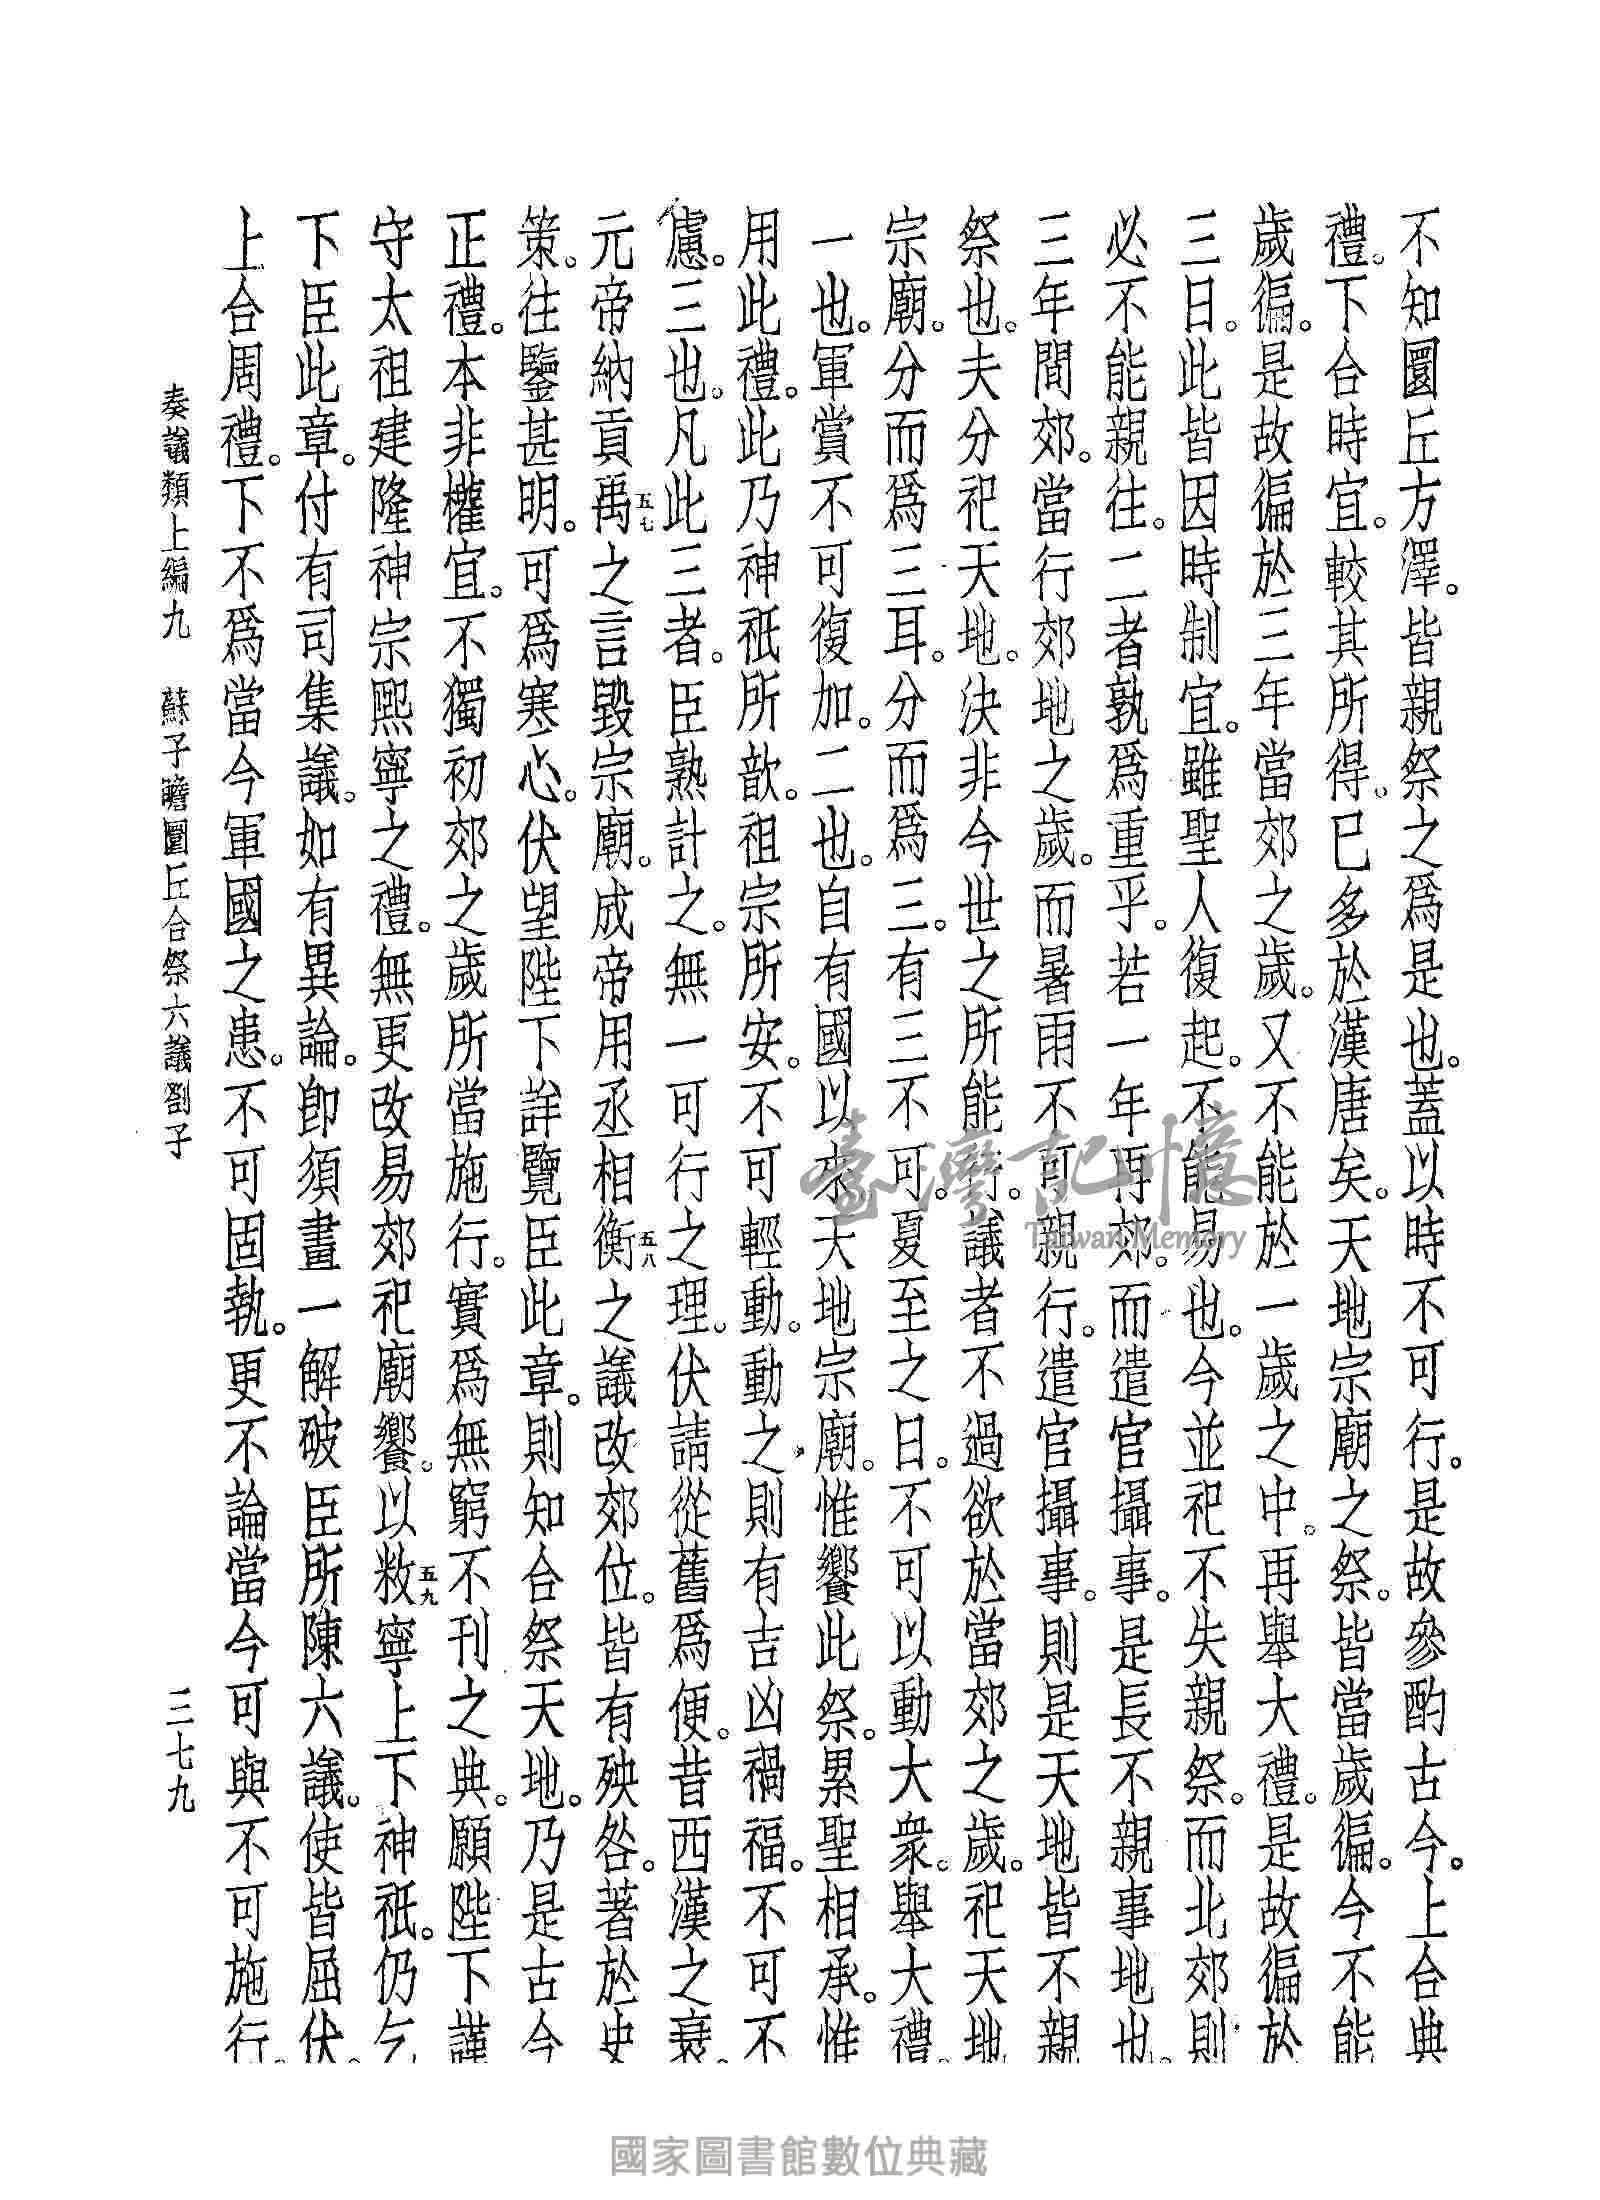 不知圜丘方澤。皆親祭之爲是也。蓋以時不可行。是故參酌古今。上合典
禮。下合時宜。較其所得。已多於漢唐矣。天地宗廟之祭。皆當歲徧。今不能
歲徧。是故徧於三年當郊之歲。又不能於一歲之中。再舉大禮。是故徧於
三日。此皆因時制宜。雖聖人復起。不能易也。今並祀不失親祭。而北郊則
必不能親往。二者孰爲重乎。若一年再郊。而遣官攝事。是長不親事地也。
三年間郊。當行郊地之歲。而暑雨不可親行。遣官攝事。則是天地皆不親
祭也。夫分祀天地。決非今世之所能行。議者不過欲於當郊之歲。祀天地
宗廟。分而爲三耳。分而爲三。有三不可。夏至之日。不可以動大衆。舉大禮。
一也。軍賞不可復加。二也。自有國以來天地宗廟。惟饗此祭。累聖相承。惟
用此禮。此乃神祇所歆。祖宗所安。不可輕動。動之則有吉凶禍福。不可不
慮。三也。凡此三者。臣熟計之。無一可行之理。伏請從舊爲便。昔西漢之衰。
元帝納貢禹五七之言毀宗廟。成帝用丞相衡五八之議改郊位。皆有殃咎。著於史
策。往鑒甚明。可爲寒心。伏望陛下詳覽臣此章。則知合祭天地。乃是古今
正禮。本非權宜。不獨初郊之歲所當施行。實爲無窮不刊之典。願陛下謹
守太祖建隆神宗熙寧之禮。無更改易郊祀廟饗。以敉五九寧上下神祇。仍乞
下臣此章。付有司集議。如有異論。卽須畫一解破臣所陳六議。使皆屈伏。
上合周禮。下不爲當今軍國之患。不可固執。更不論當今可與不可施行。
奏議類上編九　蘇子瞻圜丘合祭六議劄子
三七九
臺灣記憶
Taiwan Memory
國家圖書館數位典藏